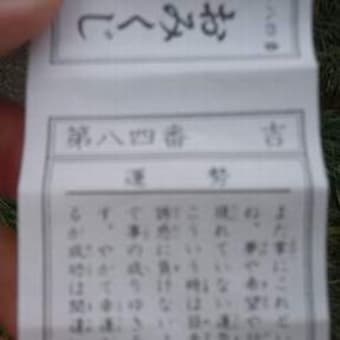 八四番
おみくじ
第八四番 吉
運勢
まだ にこれとい
ね。夢や希望や
現れていない運
こういう時は目
誘惑に負けない
て事の成りゆき
す。やがて幸運
るが成功は間違